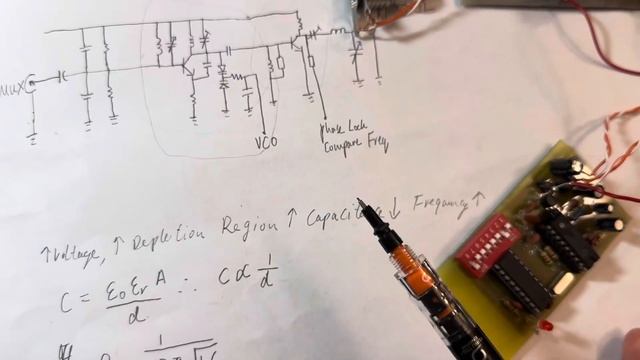 MUX
VCO
Phase Lock
Compare Freq
↑Voltage, ↑ Depletion Region ↑ Capacitance ↓ Frequency ↑
C = ε₀ εr A / d ∴ C ∝ 1/d
1